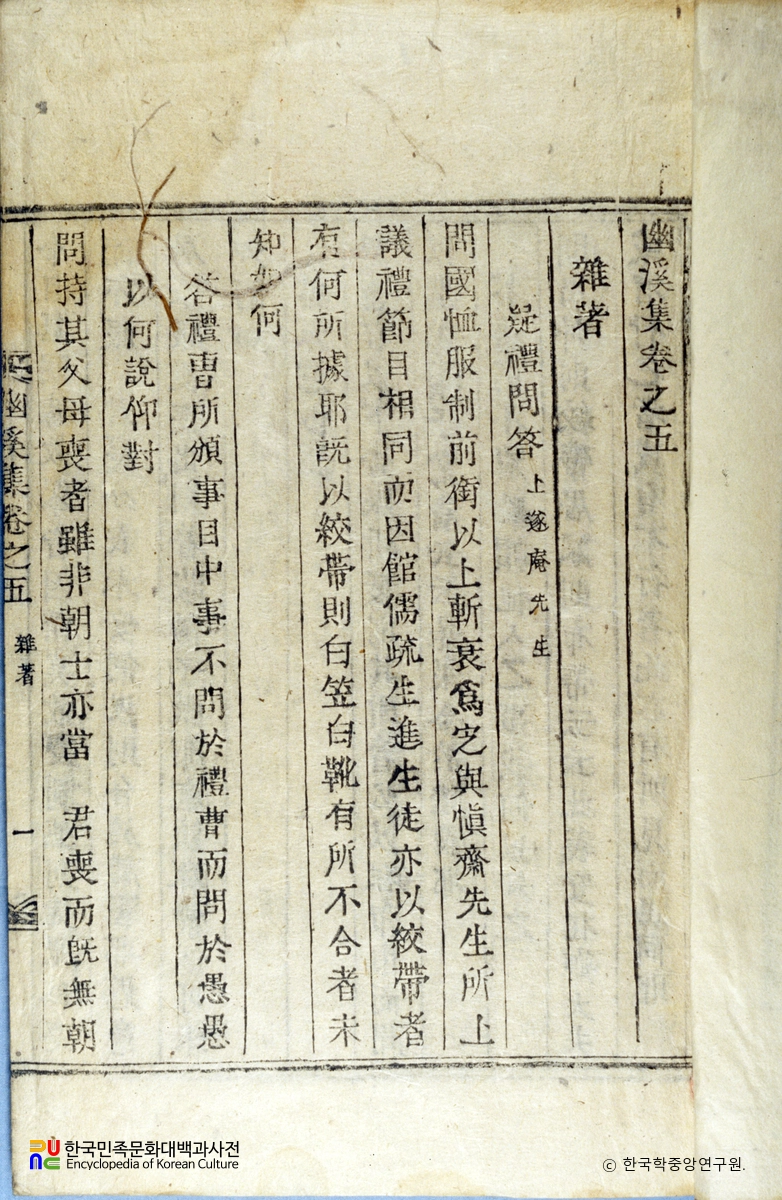 幽溪集卷之五
雜著
疑禮問答 上遂庵先生
問國恤服制前銜以上斬衰爲定與愼齋先生所上
議禮節目相同而因館儒疏生進生徒亦以絞帶者
有何所據耶旣以絞帶則白笠白靴有所不合者未
知如何
答禮曹所頒事目中事不問於禮曹而問於愚愚
以何說仰對
問持其父母喪者雖非朝士亦當 君喪而旣無朝
幽溪集卷之五 雜著 一
한국민족문화대백과사전
Encyclopedia of Korean Culture
ⓒ 한국학중앙연구원.